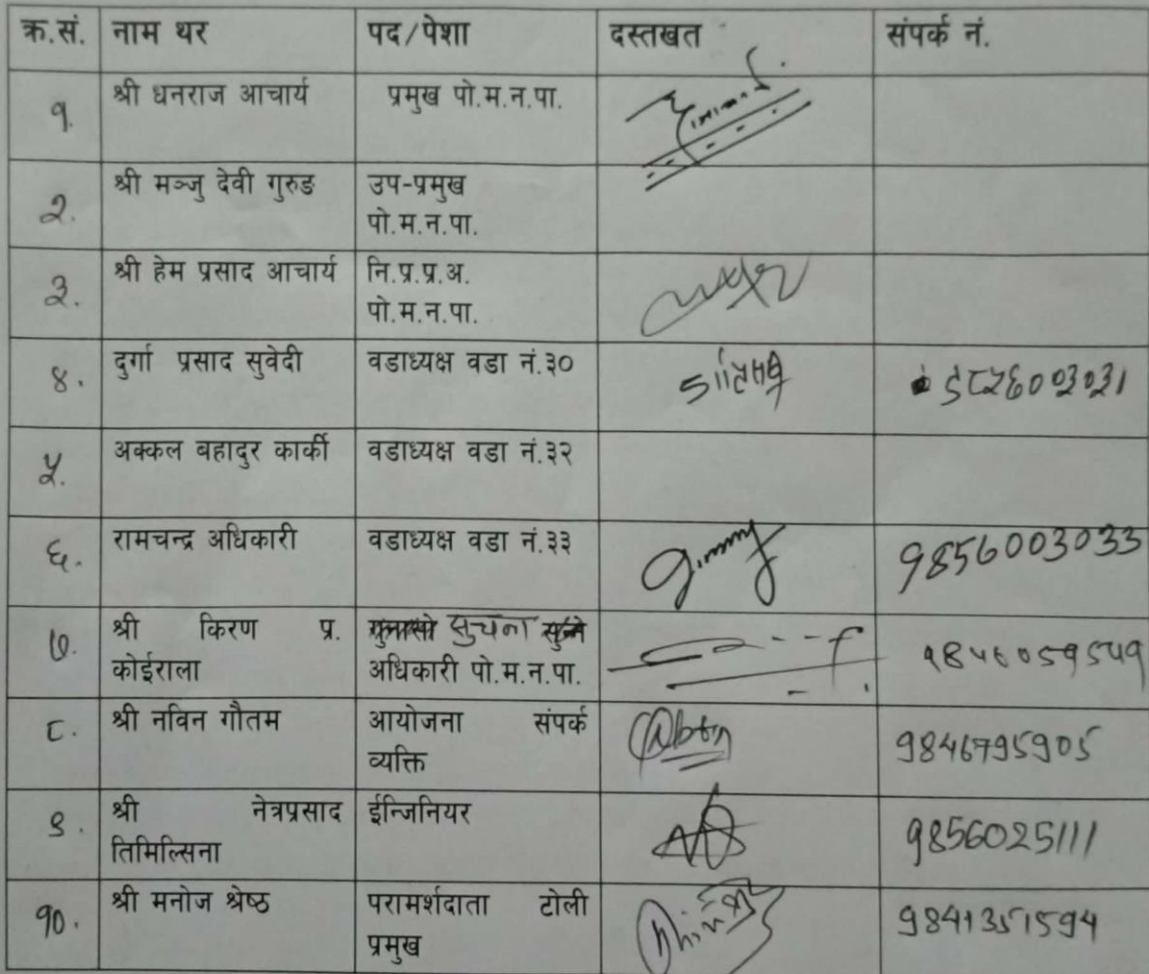 क्र.सं. नाम थर पद/पेशा दस्तखत संपर्क नं.
१. श्री धनराज आचार्य प्रमुख पो.म.न.पा.
२. श्री मञ्जु देवी गुरुङ उप-प्रमुख
पो.म.न.पा.
३. श्री हेम प्रसाद आचार्य नि.प्र.प्र.अ.
पो.म.न.पा.
४. दुर्गा प्रसाद सुवेदी वडाध्यक्ष वडा नं.३० ९८५६००३०३१
५. अक्कल बहादुर कार्की वडाध्यक्ष वडा नं.३२
६. रामचन्द्र अधिकारी वडाध्यक्ष वडा नं.३३ 9856003033
७. श्री किरण प्र. सुचना
कोईराला अधिकारी पो.म.न.पा. 9846059549
८. श्री नविन गौतम आयोजना संपर्क 9846795905
व्यक्ति
९. श्री नेत्रप्रसाद ईन्जिनियर 9856025111
तिमिल्सिना
१०. श्री मनोज श्रेष्ठ परामर्शदाता टोली 9841351594
प्रमुख